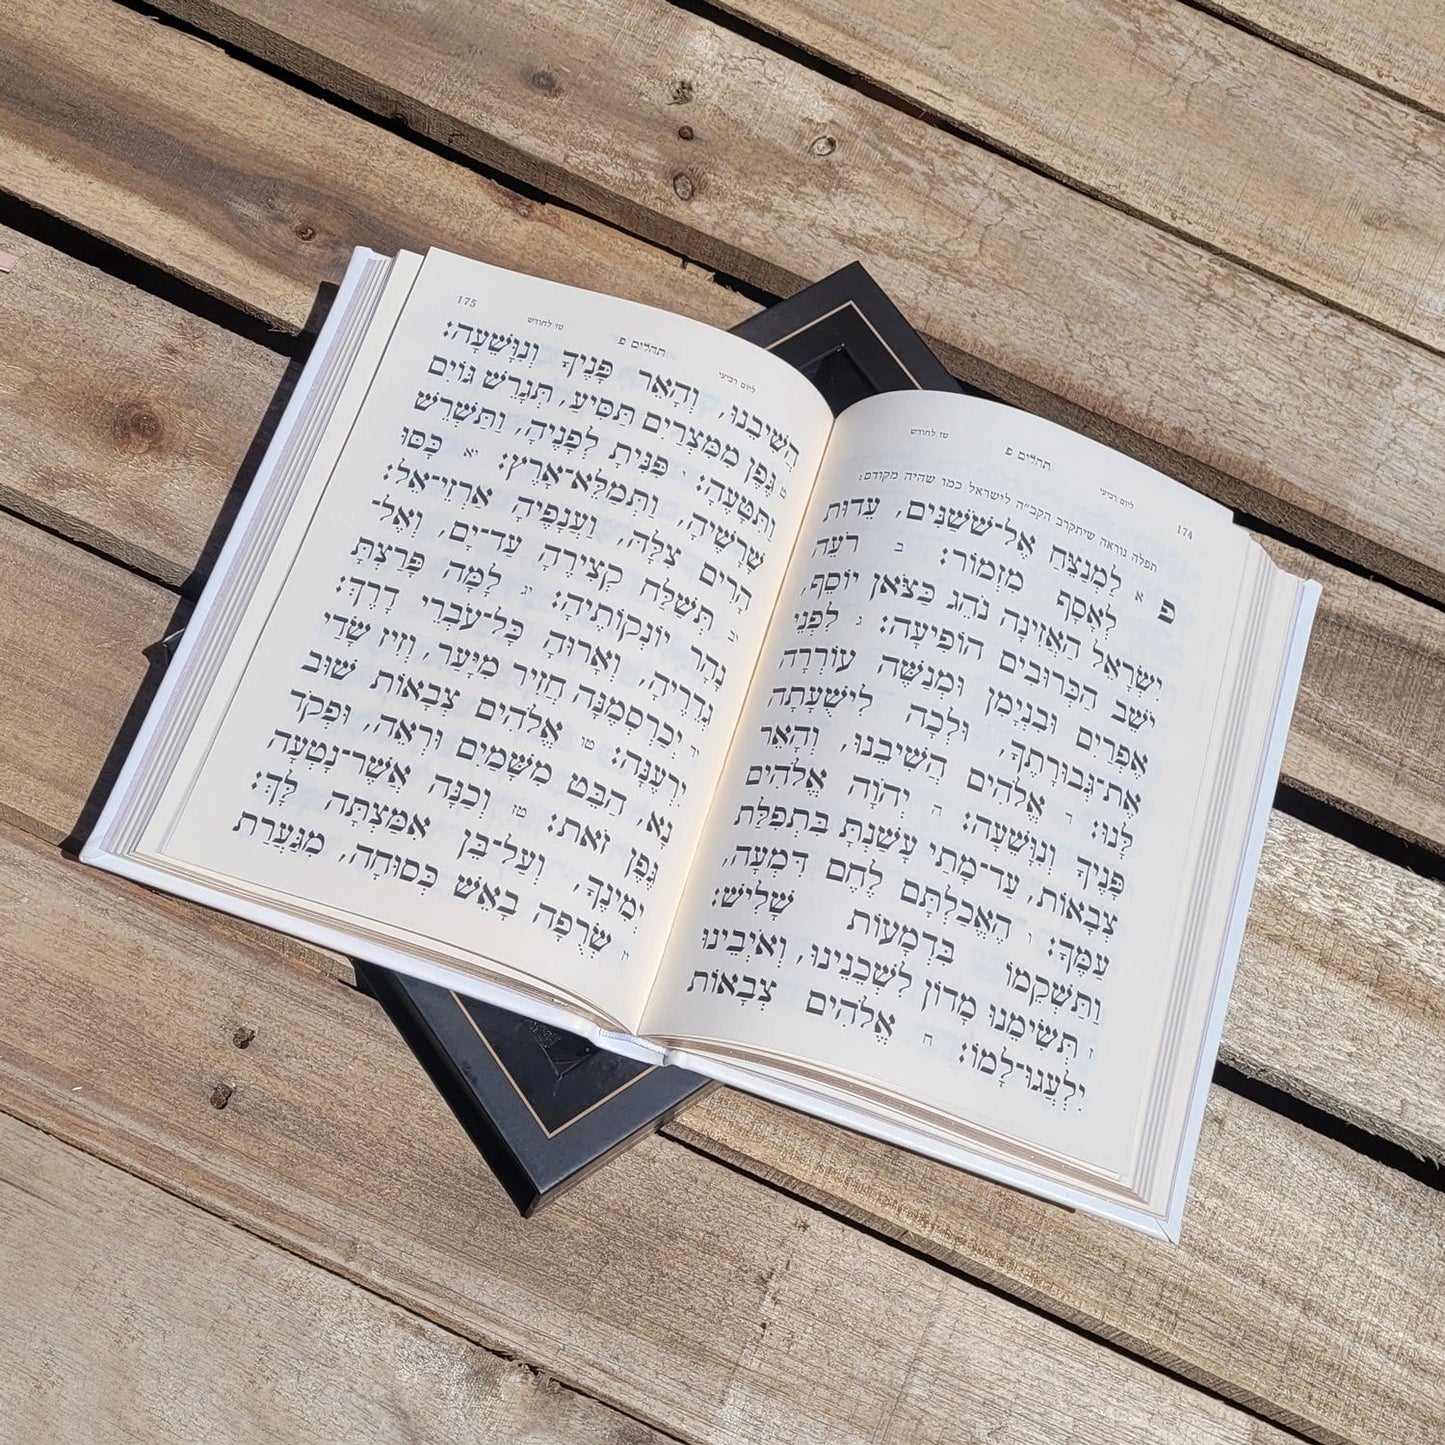 174
ליום רביעי
תהלים פ
טז לחודש
תפלה נוראה שיתקרב הקב״ה לישראל כמו שהיה מקודם:
פ א לַמְנַצֵּחַ אֶל־שֹׁשַׁנִּים, עֵדוּת
לְאָסָף מִזְמוֹר: ב רֹעֵה
יִשְׂרָאֵל הַאֲזִינָה נֹהֵג כַּצֹּאן יוֹסֵף,
יֹשֵׁב הַכְּרוּבִים הוֹפִיעָה: ג לִפְנֵי
אֶפְרַיִם וּבִנְיָמִן וּמְנַשֶּׁה עוֹרְרָה
אֶת־גְּבוּרָתֶךָ, וּלְכָה לִישֻׁעָתָה
לָּנוּ: ד אֱלֹהִים הֲשִׁיבֵנוּ, וְהָאֵר
פָּנֶיךָ וְנִוָּשֵׁעָה: ה יְהֹוָה אֱלֹהִים
צְבָאוֹת, עַד־מָתַי עָשַׁנְתָּ בִּתְפִלַּת
עַמֶּךָ: ו הֶאֱכַלְתָּם לֶחֶם דִּמְעָה,
וַתַּשְׁקֵמוֹ בִּדְמָעוֹת שָׁלִישׁ:
ז תְּשִׂימֵנוּ מָדוֹן לִשְׁכֵנֵינוּ, וְאֹיְבֵינוּ
יִלְעֲגוּ־לָמוֹ: ח אֱלֹהִים צְבָאוֹת
175
ליום רביעי
תהלים פ
טז לחודש
הֲשִׁיבֵנוּ, וְהָאֵר פָּנֶיךָ וְנִוָּשֵׁעָה:
ט גֶּפֶן מִמִּצְרַיִם תַּסִּיעַ, תְּגָרֵשׁ גּוֹיִם
וַתִּטָּעֶהָ: י פִּנִּיתָ לְפָנֶיהָ, וַתַּשְׁרֵשׁ
שָׁרָשֶׁיהָ, וַתְּמַלֵּא־אָרֶץ: יא כָּסּוּ
הָרִים צִלָּהּ, וַעֲנָפֶיהָ אַרְזֵי־אֵל:
יב תְּשַׁלַּח קְצִירֶהָ עַד־יָם, וְאֶל־
נָהָר יוֹנְקוֹתֶיהָ: יג לָמָּה פָּרַצְתָּ
גְדֵרֶיהָ, וְאָרוּהָ כָּל־עֹבְרֵי דָרֶךְ:
יד יְכַרְסְמֶנָּה חֲזִיר מִיָּעַר, וְזִיז שָׂדַי
יִרְעֶנָּה: טו אֱלֹהִים צְבָאוֹת שׁוּב
נָא, הַבֵּט מִשָּׁמַיִם וּרְאֵה, וּפְקֹד
גֶּפֶן זֹאת: טז וְכַנָּה אֲשֶׁר־נָטְעָה
יְמִינֶךָ, וְעַל־בֵּן אִמַּצְתָּה לָּךְ:
יז שְׂרֻפָה בָאֵשׁ כְּסוּחָה, מִגַּעֲרַת